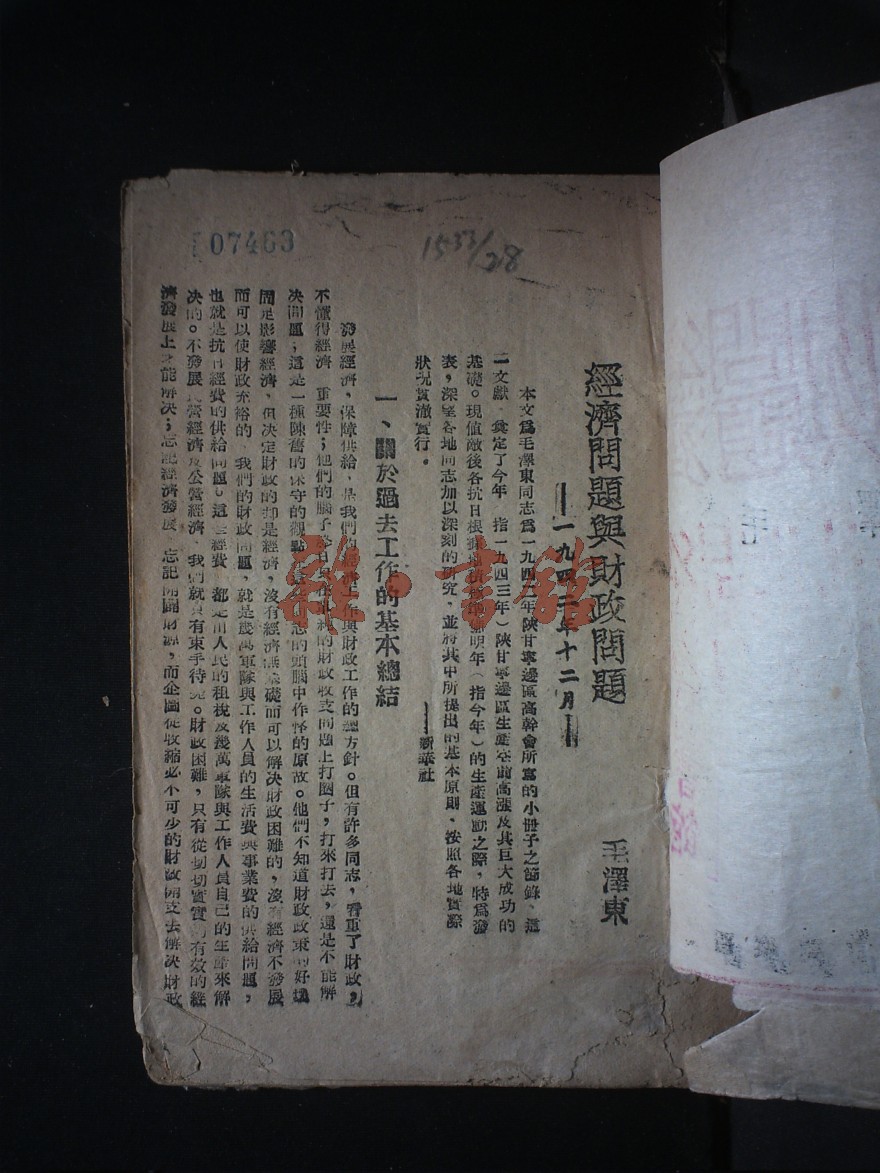 經濟問題與財政問題
——一九四二年十二月——
毛澤東
本文爲毛澤東同志爲一九四二年陝甘寧邊區高幹會所寫的小冊子之節錄,這
一文獻,奠定了今年(指一九四三年)陝甘寧邊區生產空前高漲及其巨大成功的
基礎。現值敵後各抗日根據地 明年(指今年)的生產運動之際,特爲發
表,深望各地同志加以深刻的研究,並將其中所提出的基本原則,按照各地實際
狀況貫澈實行。
——新華社
一、關於過去工作的基本總結
發展經濟,保障供給,是我們的經濟工作與財政工作的總方針。但有許多同志,看重了財政,
不懂得經濟 重要性;他們的腦子終日 的財政收支問題上打圈子,打來打去,還是不能解
決問題;這是一種陳舊的保守的觀點 同志的頭腦中作怪的原故。他們不知道財政政策的好壞
固足影響經濟,但決定財政的却是經濟,沒有經濟無基礎而可以解決財政困難的,沒有經濟不發展
而可以使財政充裕的 我們的財政問題,就是幾萬軍隊與工作人員的生活費與事業費的供給問題,
也就是抗日經費的供給問題。這些經費 都是由人民的租稅及幾萬軍隊與工作人員自己的生產來解
決的。不發展民營經濟及公營經濟,我們就只有束手待斃。財政困難,只有從切切實實的有效的經
濟發展上才能解決;忘記經濟發展,忘記開闢財源,而企圖從收縮必不可少的財政開支去解決財政
07463
1533/28
雜·書館